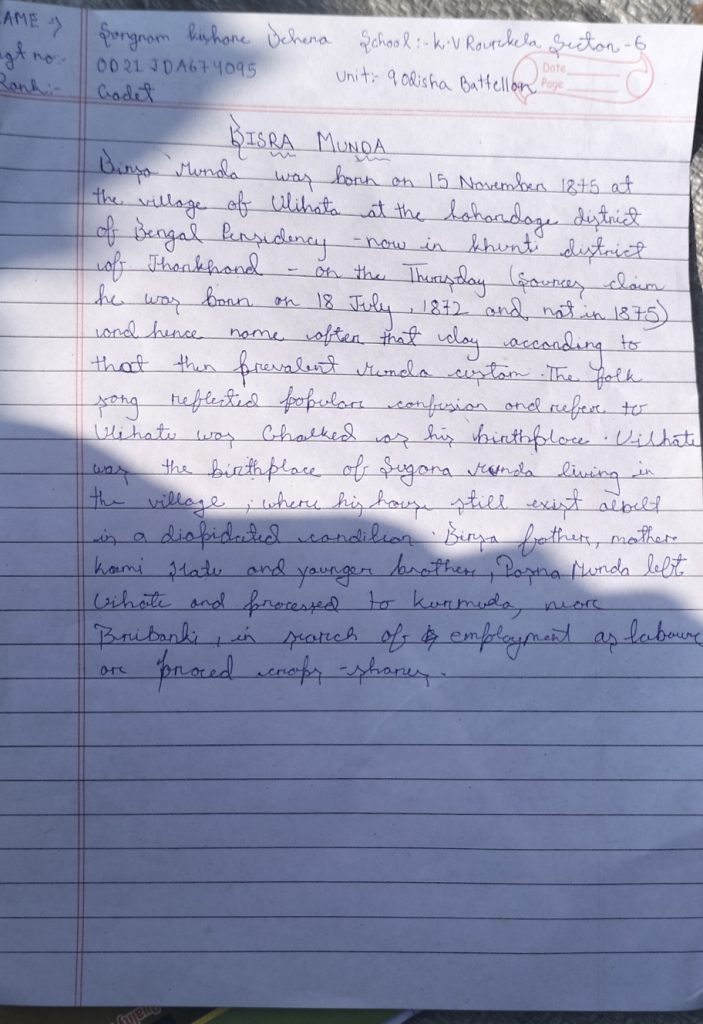 NAME →
Sangnam kishore Behera School:- K.V Rourkela Secton-6
Regt no:- OD21JDA674095 Unit:- 9 Odisha Battellon
Rank:- Cadet
Date
Page
BISRA MUNDA
Birsa Munda was born on 15 November 1875 at
the village of Ulihata at the Lohardaga district
of Bengal Persidency - now in khunti district
of Jharkhand - on the Thursday (sources claim
he was born on 18 July, 1872 and not in 1875)
and hence name after that day according to
that then prevalent Munda custom. The folk
song reflected popular confusion and refere to
Ulihatu was Chalked as his birthplace. Ulihatu
was the birthplace of Sugana Munda living in
the village, where his house still exist albelt
in a diapidated condition. Birsa father, mother
karmi Hatu and younger brother, Pasna Munda left
Ulihatu and processed to Kurmuda, near
Biribanki, in search of employment as labour
or proced crops -shares.